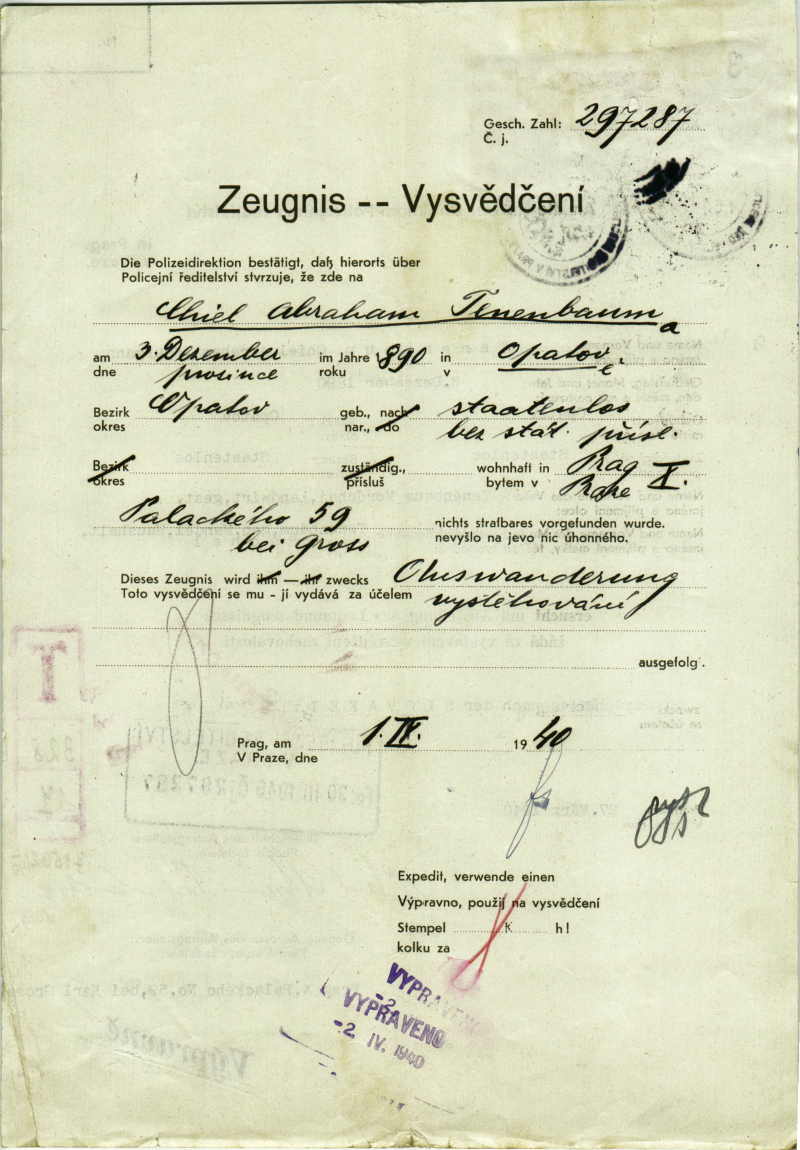 Gesch. Zahl: 297287
Č. j.
Zeugnis -- Vysvědčení
Die Polizeidirektion bestätigt, daß hierorts über
Policejní ředitelství stvrzuje, že zde na
Chiel Abraham Tenenbaum a
am 3. Dezember im Jahre 1890 in Opatov
dne prosince roku v ě
Bezirk Opatov geb., nach staatenlos
okres nar., do bez stát. přísl.
Bezirk zuständig., wohnhaft in Prag X.
okres přísluš bytem v Praze
Palackého 59 nichts strafbares vorgefunden wurde.
bei Gross nevyšlo na jevo nic úhonného.
Dieses Zeugnis wird ihm — ihr zwecks Auswanderung
Toto vysvědčení se mu - jí vydává za účelem vystěhování
ausgefolgt.
Prag, am 1. IV. 1940
V Praze, dne
Expedit, verwende einen
Výpravno, použij na vysvědčení
Stempel K h!
kolku za
VYPRAVENO
-2
VYPRAVENO
-2 IV. 1940